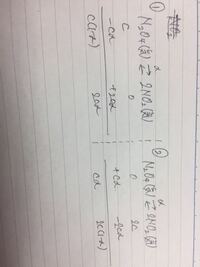 ① N₂O₄(気) ⇄ 2NO₂(気)
α
C 0
-Cα +2Cα
C(1-α) 2Cα
② N₂O₄(気) ⇄ 2NO₂(気)
α
0 2C
+Cα -2Cα
Cα 2C(1-α)